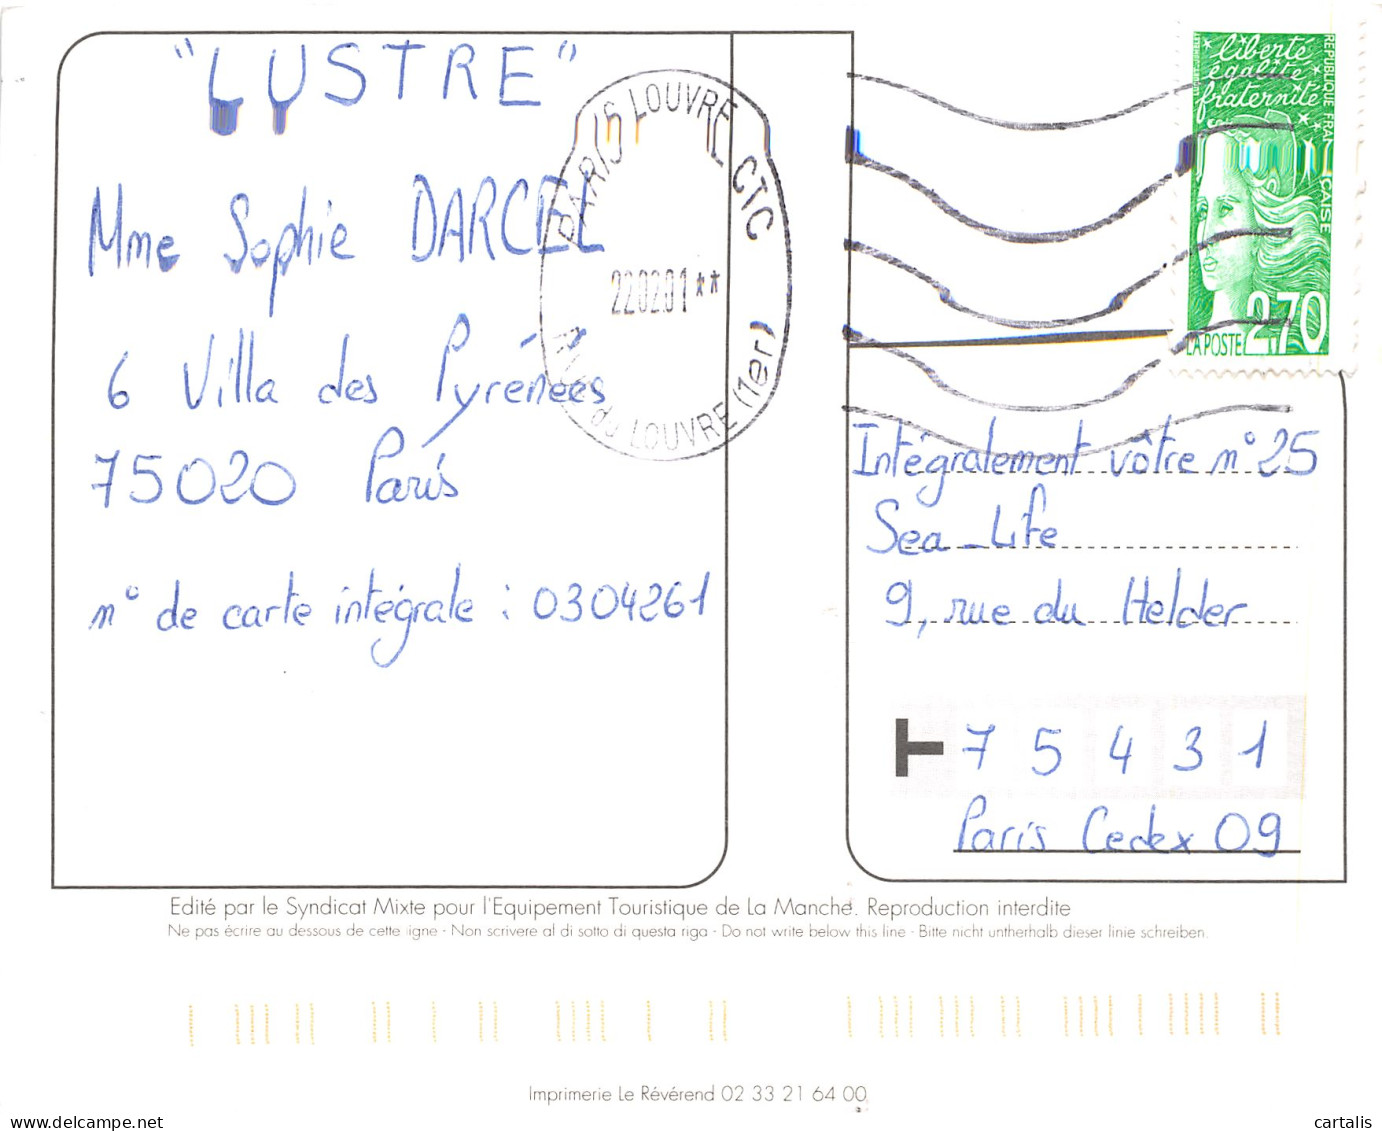 "LUSTRE"
Mme Sophie DARCEL
6 Villa des Pyrénées
75020 Paris
n° de carte intégrale : 0304261
PARIS LOUVRE CTC
22.02.01 **
R. du LOUVRE (1er)
liberté
égalité
fraternité
LA POSTE 2,70
Intégralement vôtre n°25
Sea-Life
9, rue du Helder
75431
Paris Cedex 09
Edité par le Syndicat Mixte pour l'Equipement Touristique de La Manche. Reproduction interdite
Ne pas écrire au dessous de cette ligne - Non scrivere al di sotto di questa riga - Do not write below this line - Bitte nicht untherhalb dieser linie schreiben.
Imprimerie Le Révérend 02 33 21 64 00
cartalis